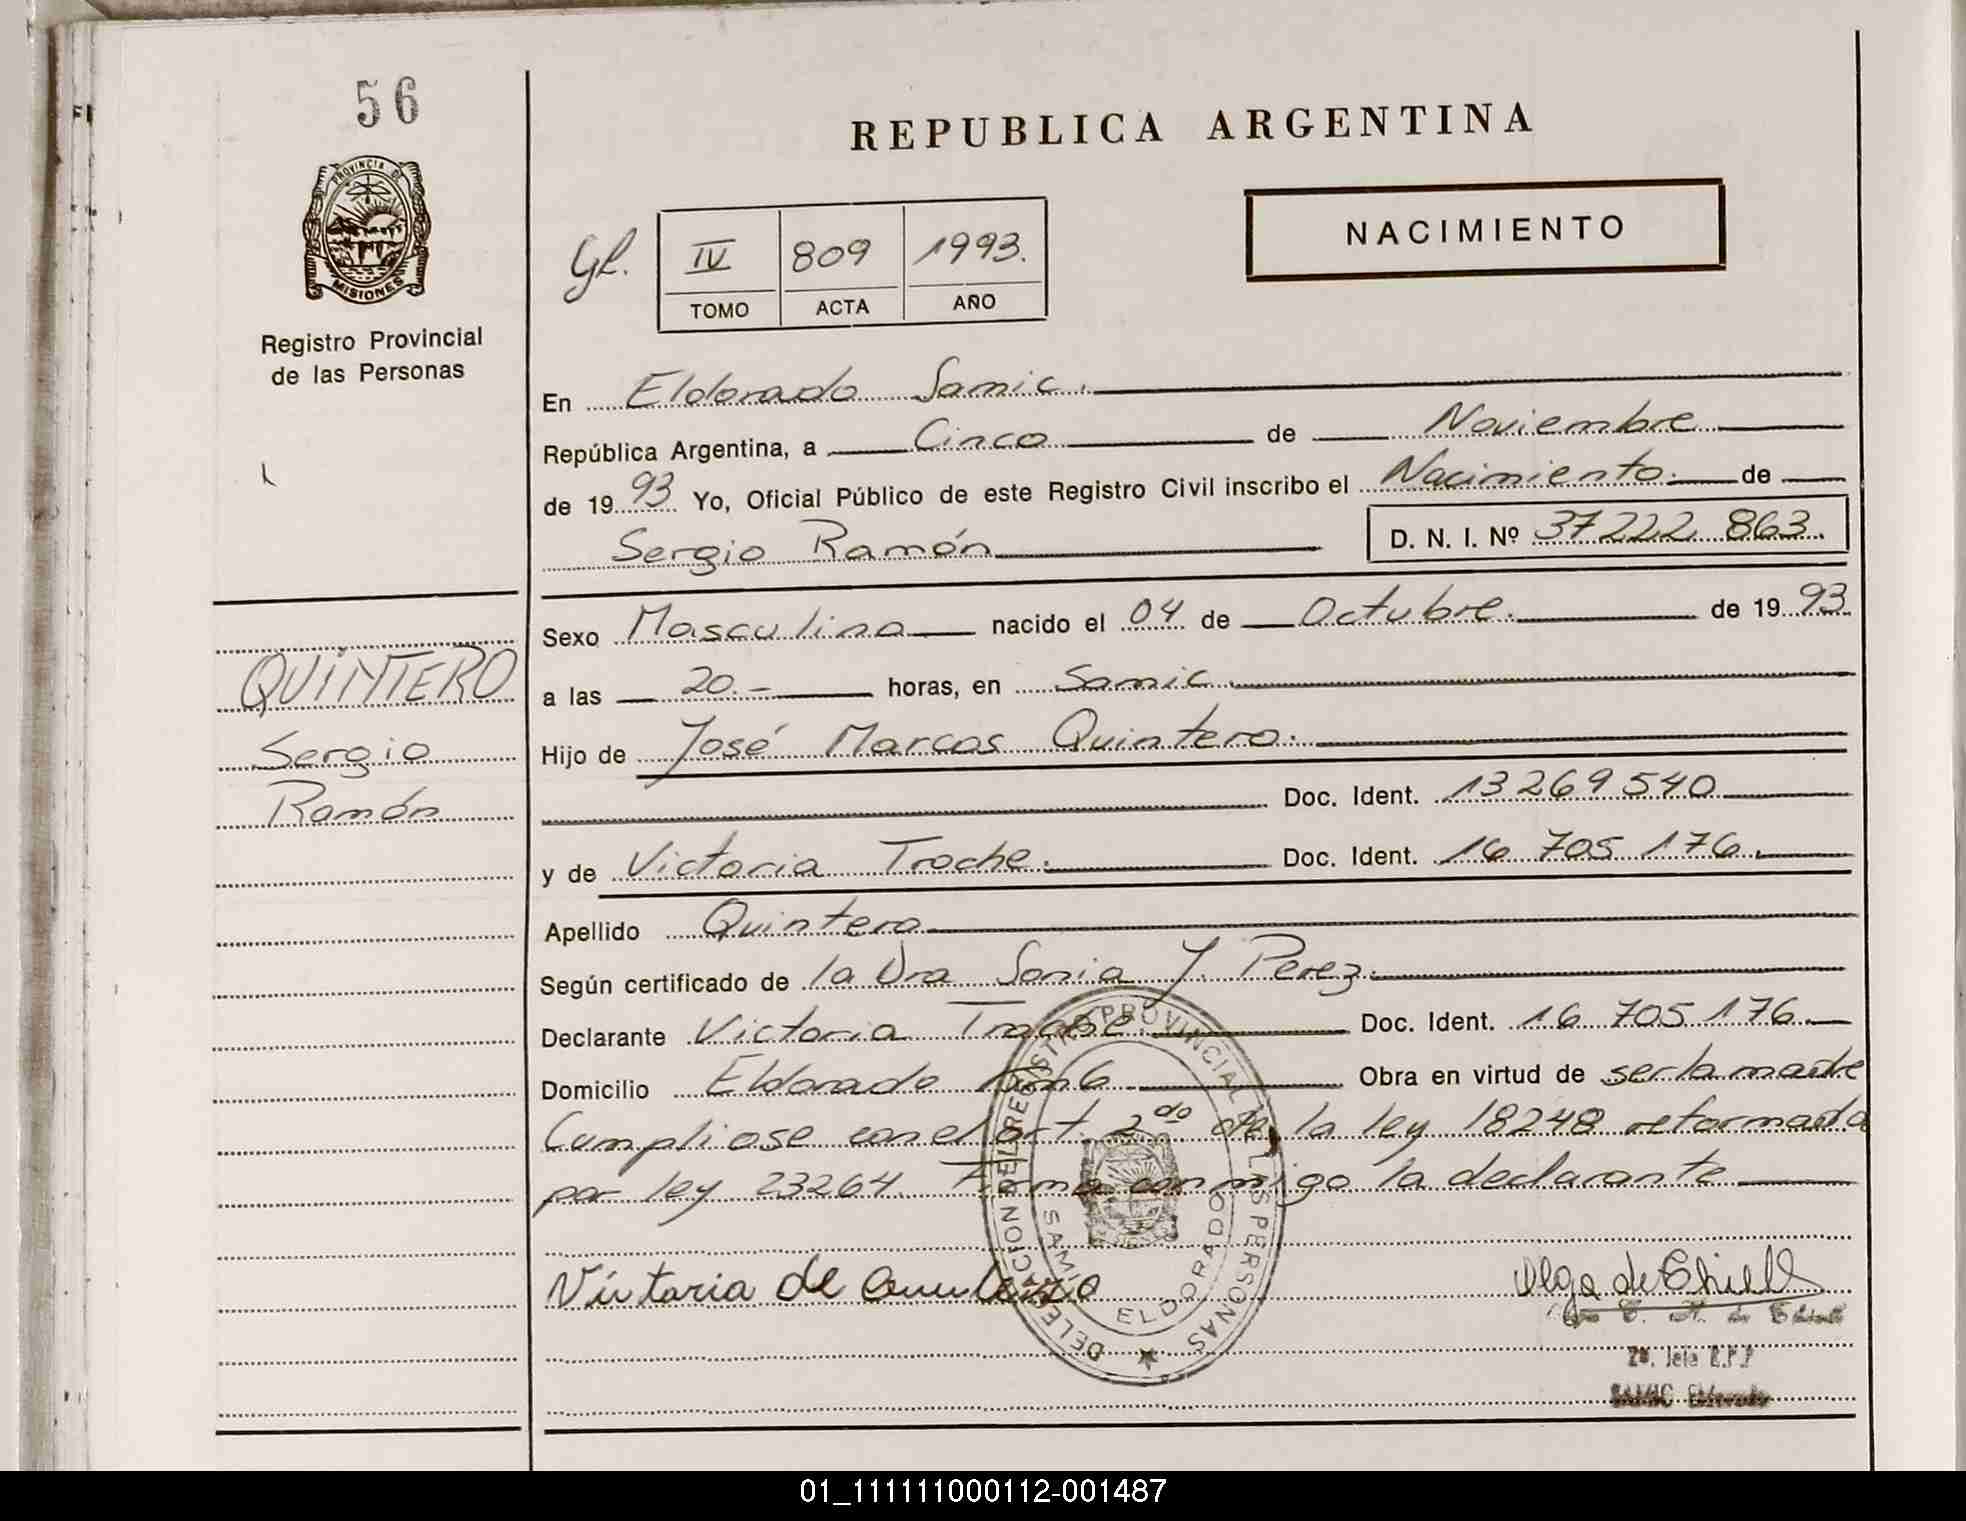 56
PROVINCIA DE
MISIONES
Registro Provincial
de las Personas
REPUBLICA ARGENTINA
NACIMIENTO
IV 809 1993.
TOMO ACTA AÑO
En Eldorado Samic.
República Argentina, a Cinco de Noviembre
de 1993 Yo, Oficial Público de este Registro Civil inscribo el Nacimiento. de
Sergio Ramón D. N. I. Nº 37 222 863.
Sexo Masculino nacido el 04 de Octubre. de 1993
a las 20.- horas, en Samic.
Hijo de José Marcos Quintero.
Doc. Ident. 13 269 540
y de Victoria Troche. Doc. Ident. 16 705 176.
Apellido Quintero
Según certificado de la Dra Sonia Y. Perez.
Declarante Victoria Troche. Doc. Ident. 16 705 176.
Domicilio Eldorado Km 6 Obra en virtud de ser la madre
Cumpliose con el art. 2do de la ley 18248 reformada
por ley 23264. Firma conmigo la declarante
QUINTERO
Sergio
Ramón
Victoria de
Olga de
2º. Jefe R.P.P
SAMIC Eldorado
DELEGACION EL REGISTRO PROVINCIAL DE LAS PERSONAS
SAMIC ELDORADO
01_111111000112-001487